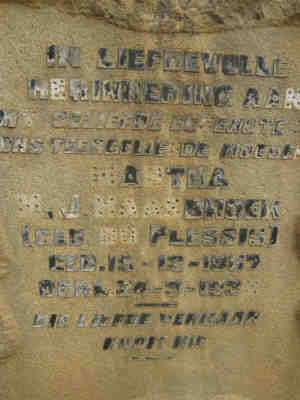 IN LIEFDEVOLLE
HERINNERING AAN
MY GELIEFDE EGGENOTE
ONS TEERGELIEFDE MOEDER
MARTHA
M. J. HAASBROEK
(GEB. DU PLESSIS)
GEB. 15-12-1867
OORL. 24-9-193
DIE LIEFDE VERGAAR
NOOIT NIE